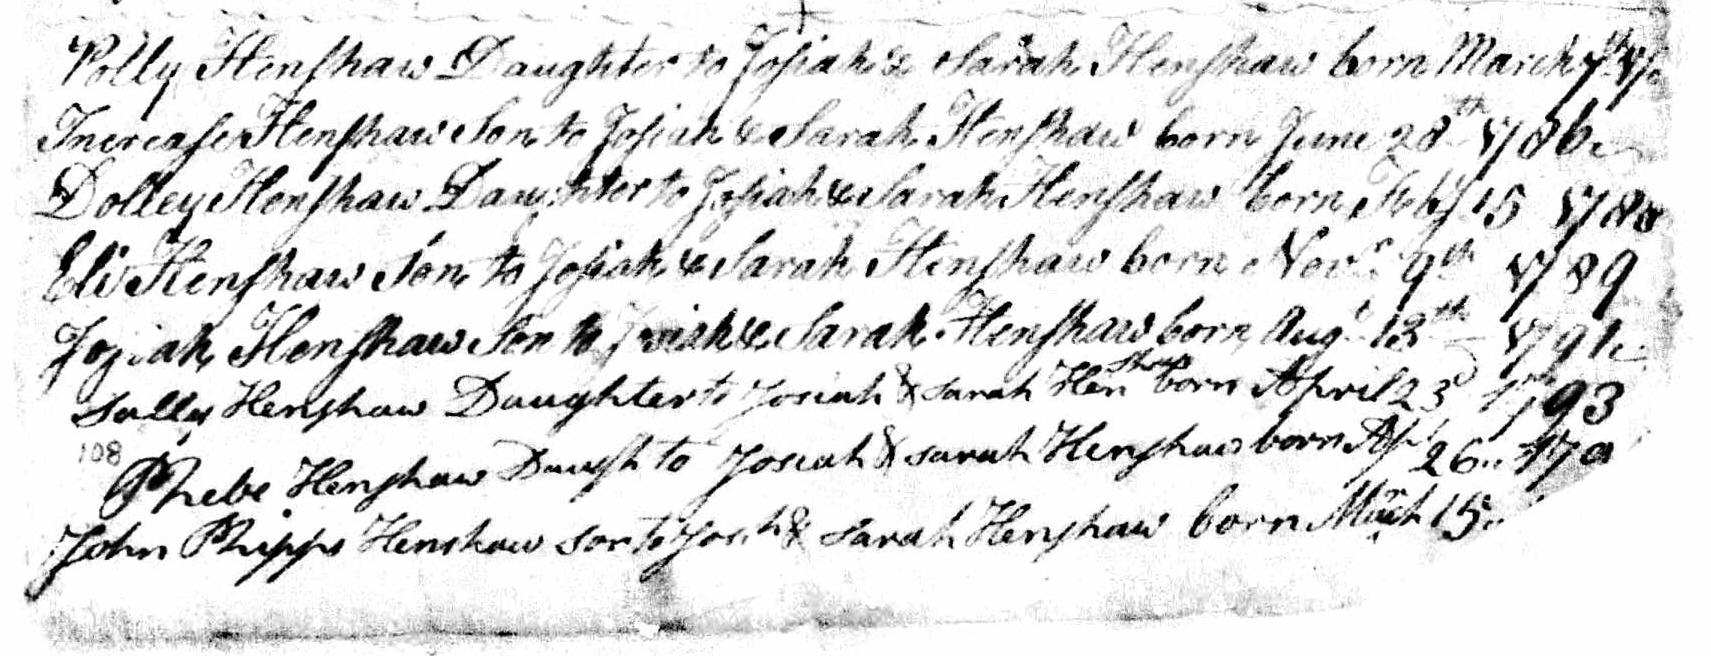 Polly Henshaw Daughter to Josiah & Sarah Henshaw born March 7th
Increase Henshaw Son to Josiah & Sarah Henshaw born June 28th 1786
Dolley Henshaw Daughter to Josiah & Sarah Henshaw born Feby 15 1788
Eli Henshaw Son to Josiah & Sarah Henshaw born Novr 9th 1789
Josiah Henshaw Son to Josiah & Sarah Henshaw born Augt 13th 1791
Sally Henshaw Daughter to Josiah & Sarah Henshaw born April 23d 1793
108
Phebe Henshaw Daugh to Josiah & Sarah Henshaw born Apl 26
John Phipps Henshaw son to Josh & Sarah Henshaw born March 15